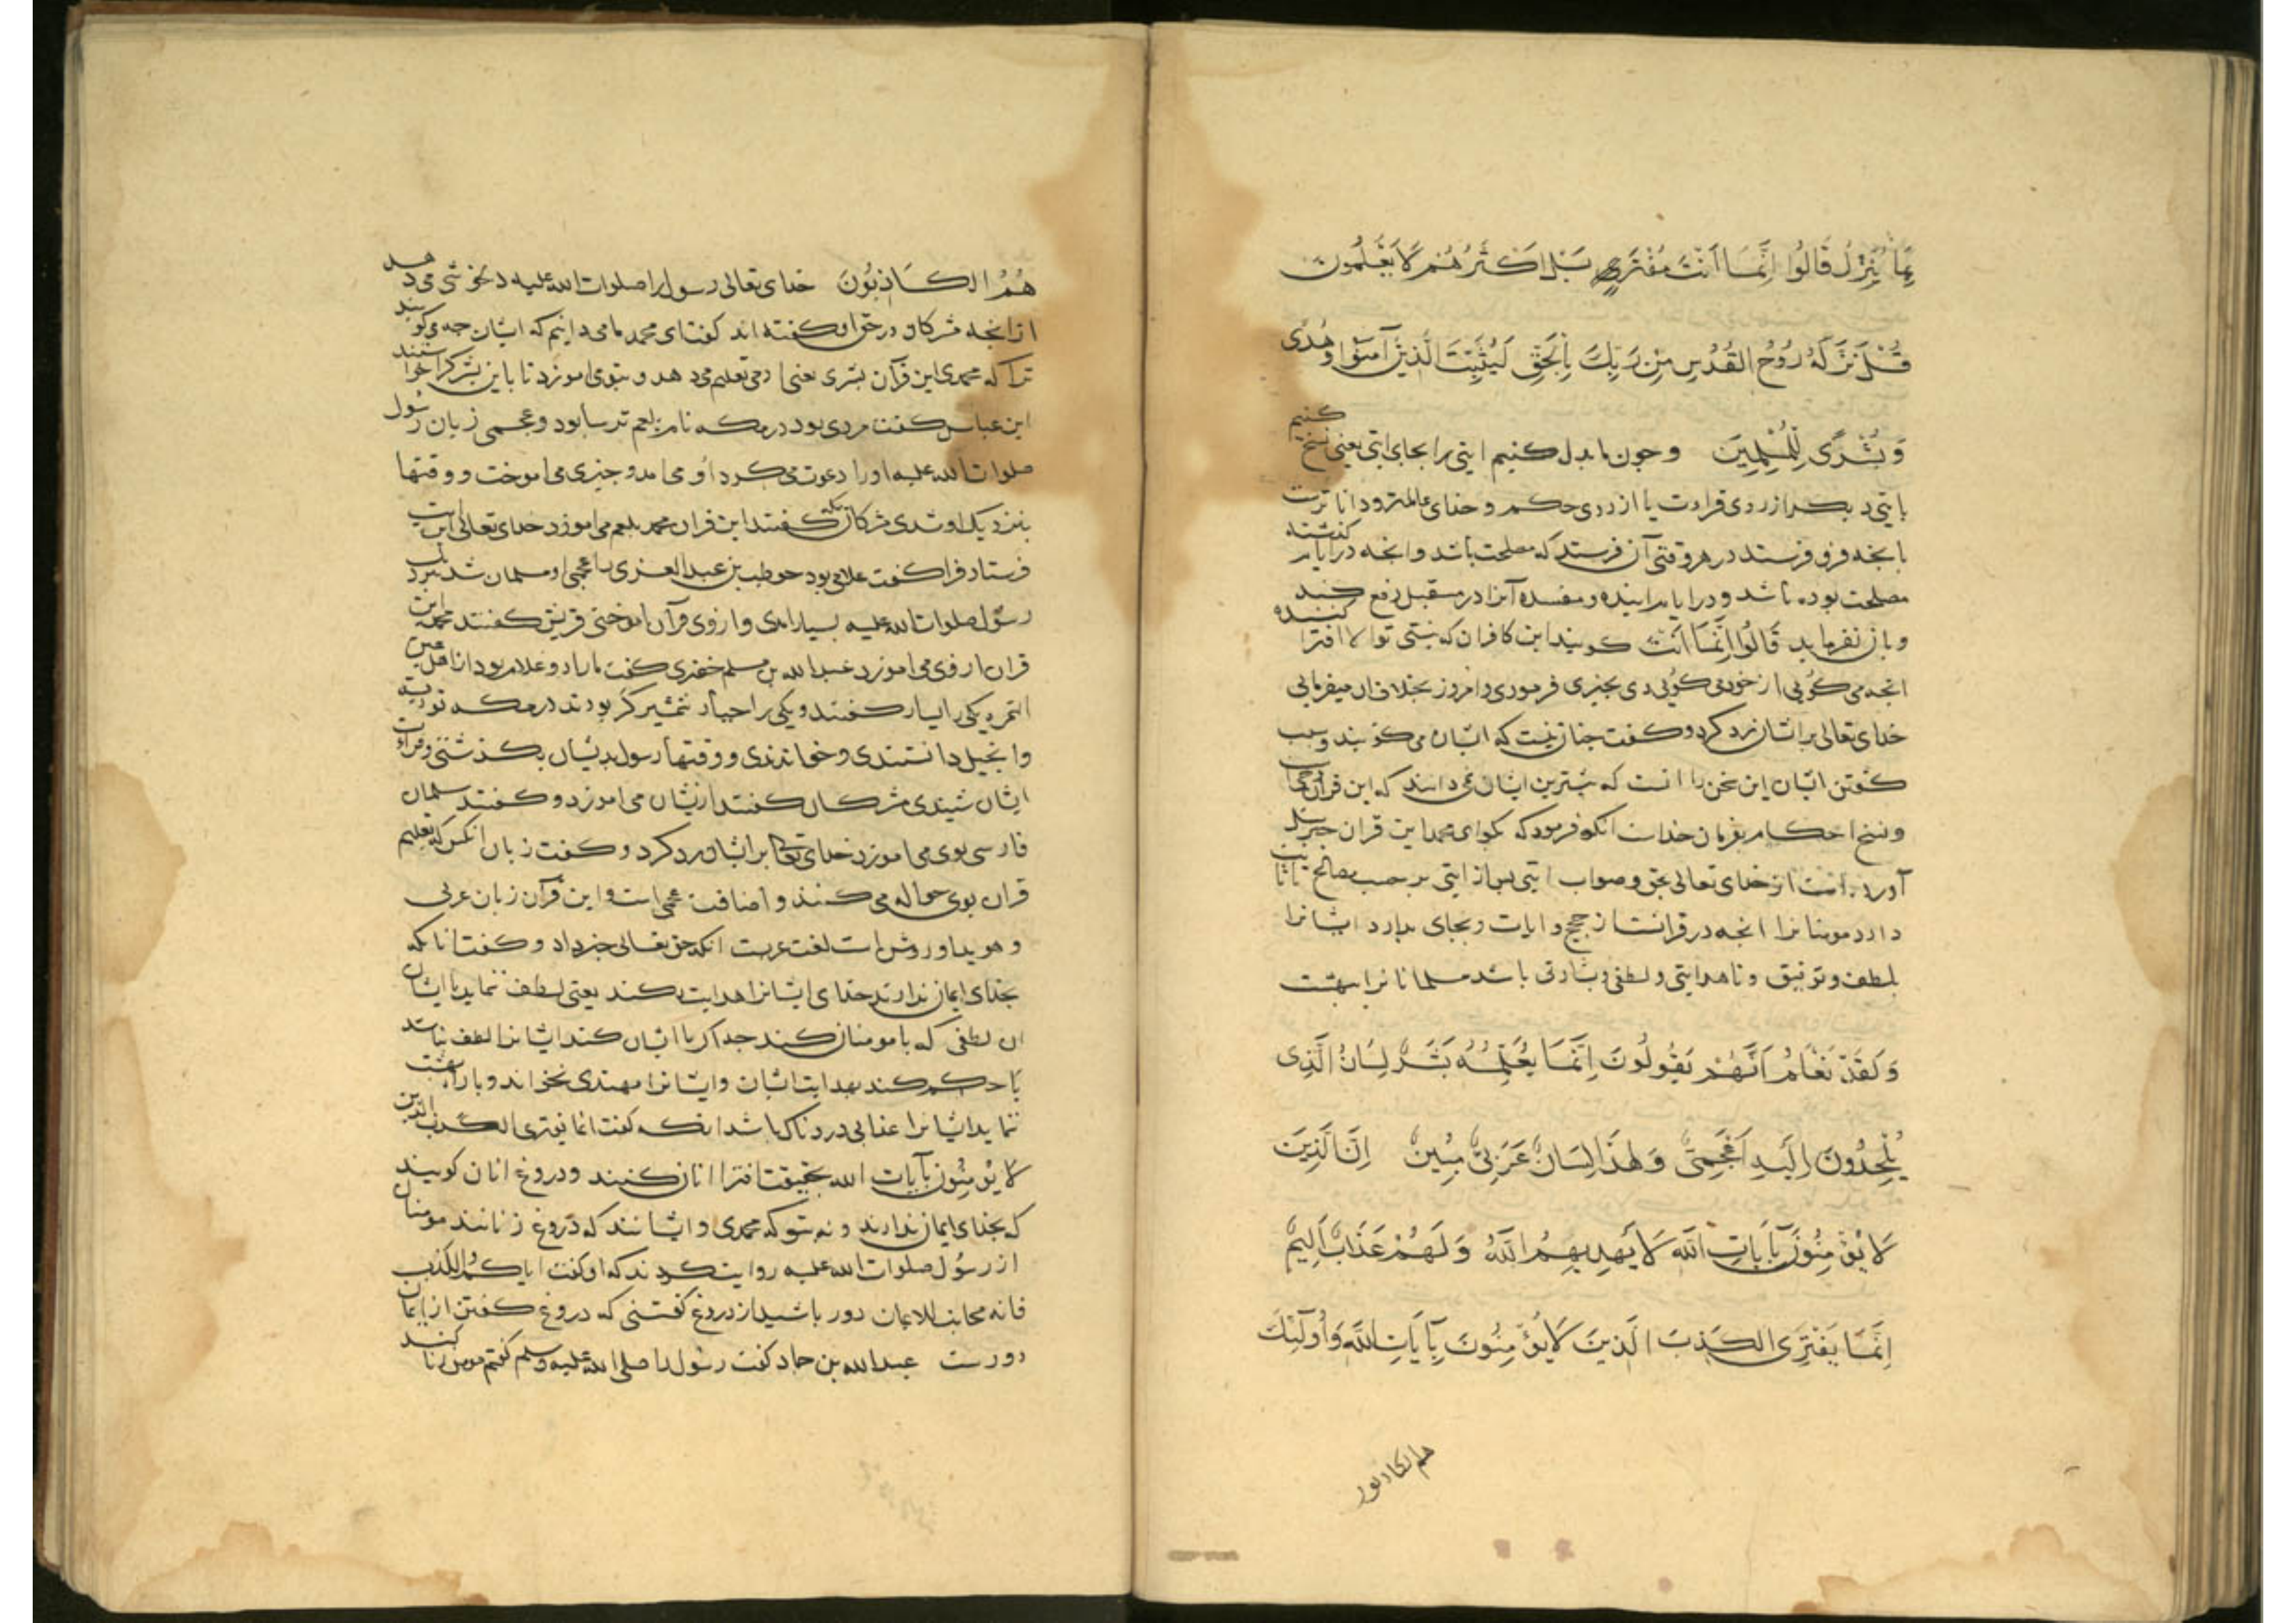 بِمَا يُنَزِّلُ قَالُوا اِنَّمَا اَنْتَ مُفْتَرٍ بَلْ اَكْثَرُهُمْ لَا يَعْلَمُونَ
قُلْ نَزَّلَهُ رُوحُ الْقُدُسِ مِنْ رَبِّكَ بِالْحَقِّ لِيُثَبِّتَ الَّذِينَ آمَنُوا وَهُدًى
وَبُشْرَى لِلْمُسْلِمِينَ وجون ما بدل كنيم ايتى را بجاى ايتى يعنى نسخ كنيم
بايتى ديكر از روى قراءت يا از روى حكم و خداى عالمتر و داناترست
بانجه فرو فرستد در هر وقتى آن فرستد كه مصلحت باشد وانجه در ايام كذشته
مصلحت بوده باشد و در ايام اينده مفسده آنرا در مستقبل رفع كند
وبازنفرمايد قَالُوا اِنَّمَا اَنْتَ كويند اين كافران كه نيستى تو الا افترا كننده
انجه مى كوئى از خود مى كوئى دى بجيزى فرمودى وامروز بخلاف ان ميفرمايى
خداى تعالى بر ايشان رد كرد و كفت جنان نيست كه ايشان مى كويند وسبب
كفتن ايشان اين سخن را انست كه بيشترين ايشان نمى دانند كه اين قران
ونسخ احكام بفرمان خداست انكه فرمود كه بكو اى محمد اين قران جبرئيل
آورده است از خداى تعالى بحق وصواب ايتى پس از ايتى بر حسب مصالح تا ثابت
دارد مومنانرا انجه در قرانست از حجج و ايات و بجاى بدارد ايشانرا
بلطف وتوفيق وتا هدايتى ولطفى وبشارتى باشد مسلمانانرا ببهشت
وَلَقَدْ نَعْلَمُ اَنَّهُمْ يَقُولُونَ اِنَّمَا يُعَلِّمُهُ بَشَرٌ لِسَانُ الَّذِى
يُلْحِدُونَ اِلَيْهِ اَعْجَمِىٌّ وَهٰذَا لِسَانٌ عَرَبِىٌّ مُبِينٌ اِنَّ الَّذِينَ
لَا يُؤْمِنُونَ بِآيَاتِ اللّٰهِ لَا يَهْدِيهِمُ اللّٰهُ وَلَهُمْ عَذَابٌ اَلِيمٌ
اِنَّمَا يَفْتَرِى الْكَذِبَ الَّذِينَ لَا يُؤْمِنُونَ بِآيَاتِ اللّٰهِ وَاُولٰئِكَ
هم الكاذبون
هُمُ الْكَاذِبُونَ خداى تعالى رسول را صلوات الله عليه دلخوشى مى دهد
ازانجه مشركان در حق او كفته اند كفت اى محمد ما مى دانيم كه ايشان جه مى كويند
ترا كه محمدى اين قرآن بشرى يعنى ادمى تعليم مى دهد و بتو مى اموزد تا باين بشر كرا خواستند
ابن عباس كفت مردى بود در مكه نام بلعم ترسا بود وعجمى زبان رسول
صلوات الله عليه اورا دعوت مى كرد او مى امد وجيزى مى اموخت ووقتها
بنزديك او شدى مشركان مكه كفتند اين قران محمد بلعم مى اموزد خداى تعالى اين ايت
فرستاد فرا كفت غلامى بود حويطب بن عبد العزى را عجمى او مسلمان شد
رسول صلوات الله عليه بسيار امدى و از وى قرآن اموختى قريش كفتند محمد اين
قران از وى مى اموزد عبد الله بن مسلم حضرمى كفت مارا دو غلام بود از اهل عين
التمر يكى را يسار كفتند و يكى را جبار شمشيركر بودند در مكه توريه
وانجيل دانستندى وخواندندى ووقتها رسول بديشان بكذشتى وقراءت
ايشان شنيدى مشركان كفتند ازيشان مى اموزد و كفتند سلمان
فارسى بوى مى اموزد خداى تعالى بر ايشان رد كرد و كفت زبان انكس كه تعليم
قران بوى حواله مى كنند و اضافت عجمى است و اين قرآن زبان عربى
وهويدا و روشن است لغت عربست انكه حق تعالى خبر داد و كفت انانكه
بخداى ايمان ندارند خداى ايشانرا هدايت نكند يعنى لطف ننمايد با ايشان
ان لطفى كه با مومنان كند جه اكر با ايشان كند ايشانرا لطف نباشد
يا حكم كند بهدايت ايشان وايشانرا مهتدى نخواند و يا راه بهشت
ننمايد ايشانرا عذابى دردناك باشد انكه كفت انما يفترى الكذب الذين
لَا يُؤْمِنُونَ بِآيَاتِ الله بحقيقت افترا انان كنند و دروغ انان كويند
كه بخداى ايمان ندارند و نه تو كه محمدى و ايشانند كه دروغ زنانند مومنان
از رسول صلوات الله عليه روايت كردند كه او كفت اياكم والكذب
فانه مجانب للايمان دور باشيد از دروغ كفتنى كه دروغ كفتن از ايمان
دورست عبد الله بن جراد كفت رسول را صلى الله عليه وسلم كفتم مومن زنا كند